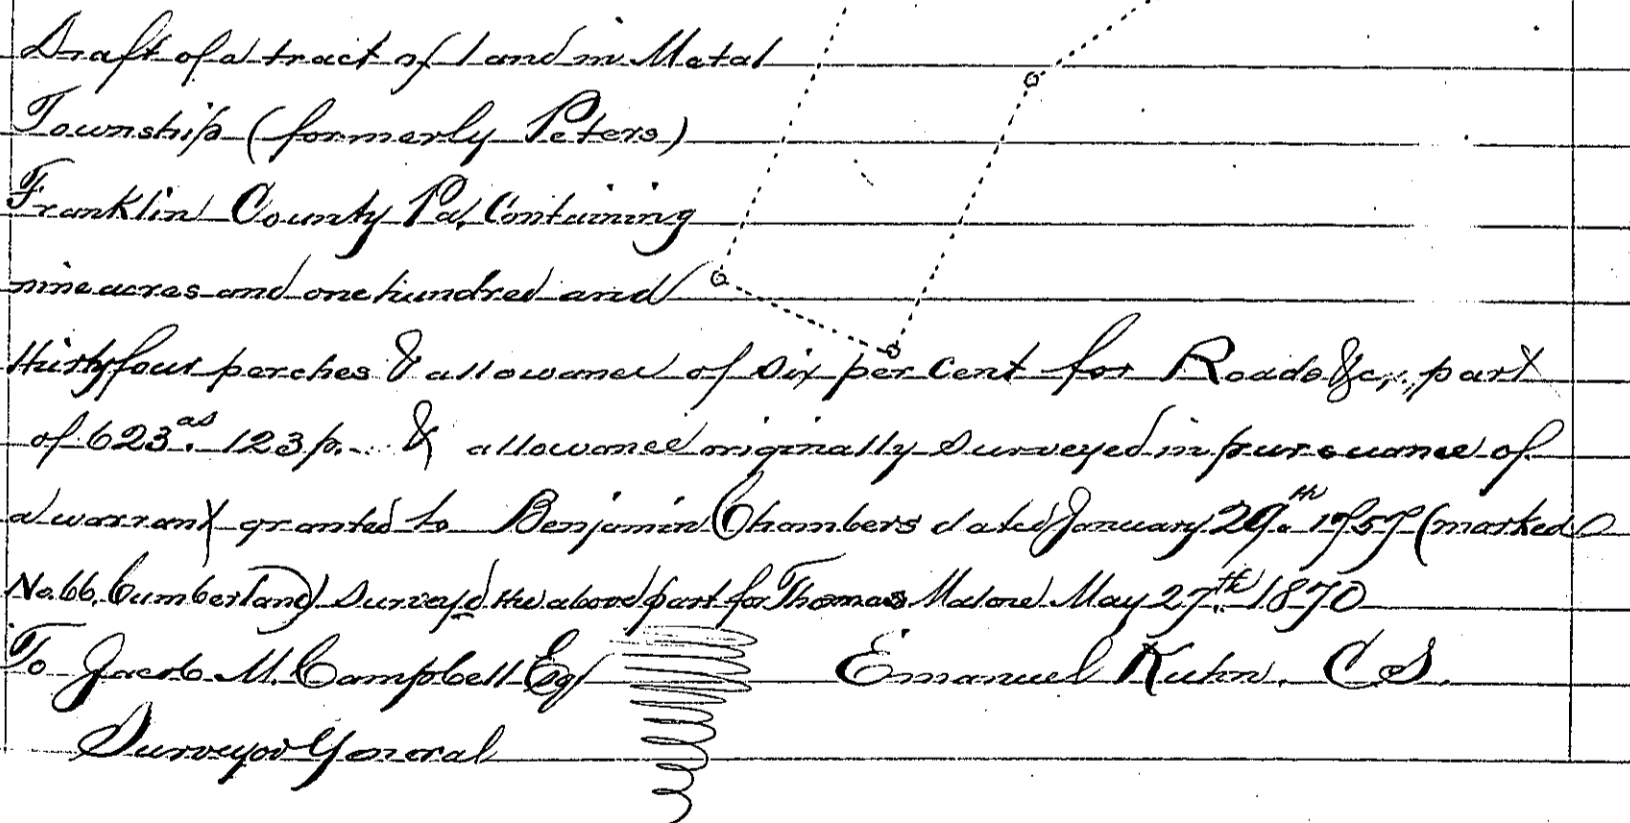 Draft of a tract of land in Metal
Township (formerly Peters)
Franklin County Pa. Containing
nine acres and one hundred and
thirty four perches & allowance of Six per Cent for Roads &c, part
of 623.as 123 p. & allowance originally Surveyed in pursuance of
a warrant granted to Benjamin Chambers dated January 29.th 1757 (marked
No. 66. Cumberland) Surveyd the above part for Thomas Malone May 27.th 1870
To Jacob M. Campbell Esq Emanuel Kuhn. C.S.
Surveyor General